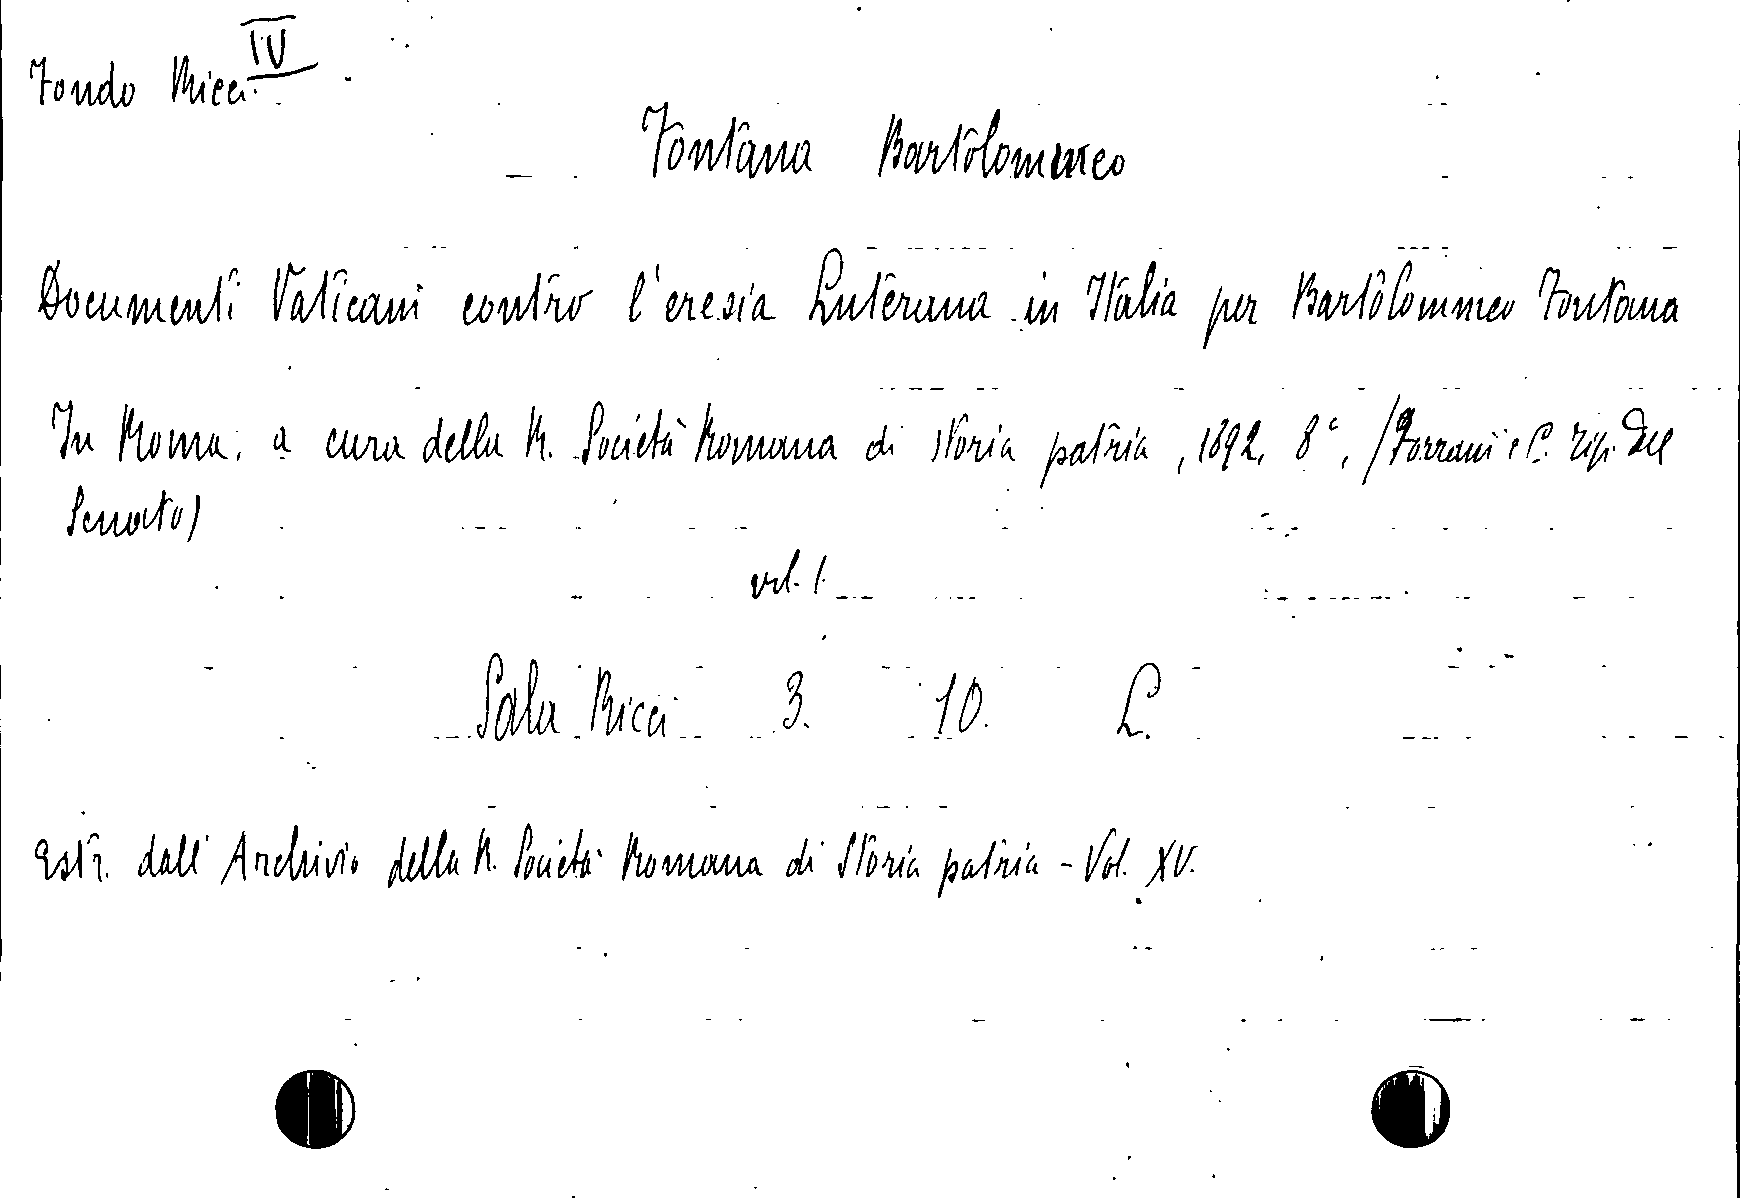 Fondo Ricci IV
Fontana Bartolommeo
Documenti Vaticani contro l'eresia Luterana in Italia per Bartolommeo Fontana
In Roma, a cura della R. Società Romana di storia patria, 1892, 8°, (Forzani e C. Tip. del
Senato)
vol. 1.
Sala Ricci 3. 10. L.
Estr. dall'Archivio della R. Società Romana di Storia patria - Vol. XV.